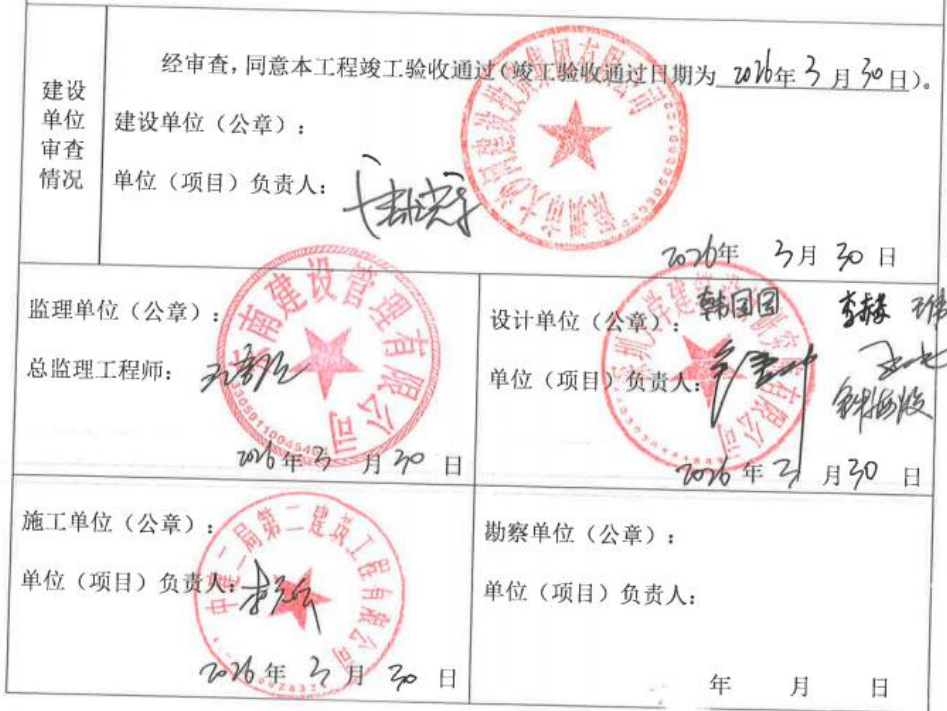 建设
单位
审查
情况
经审查，同意本工程竣工验收通过（竣工验收通过日期为 2026年 3 月 30 日）。
建设单位（公章）：
单位（项目）负责人：
2026年 3月 30 日
监理单位（公章）：
总监理工程师：
南建设管理有限公司
2026年 3 月 30 日
设计单位（公章）：
韩国国
单位（项目）负责人：
2026年 3 月 30 日
施工单位（公章）：
单位（项目）负责人：
中建二局第二建筑工程有限公司
2026年 3 月 30 日
勘察单位（公章）：
单位（项目）负责人：
年 月 日